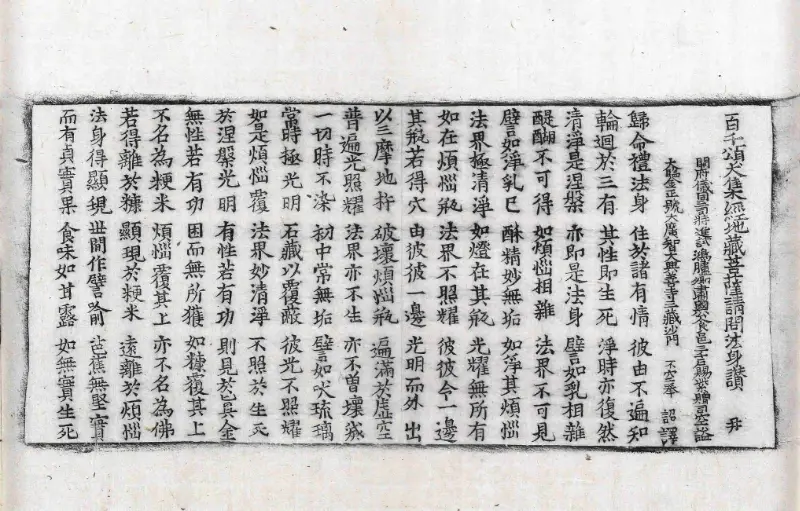 百千頌大集經地藏菩薩請問法身讚
開府儀同三司特進試鴻臚卿肅國公食邑三千戶賜紫贈司空謚
大鑒正號大廣智大興善寺三藏沙門 不空奉 詔譯
歸命禮法身 住於諸有情 彼由不遍知
輪迴於三有 其性即生死 淨時亦復然
清淨是涅槃 亦即是法身 譬如乳相雜
醍醐不可得 如煩惱相雜 法界不可見
譬如淨乳已 酥精妙無垢 如淨其煩惱
法界極清淨 如燈在其瓶 光耀無所有
如在煩惱瓶 法界不照耀 彼彼令一邊
其瓶若得穴 由彼彼一邊 光明而外出
以三摩地杵 破壞煩惱瓶 遍滿於虛空
普遍光照耀 法界亦不生 亦不曾壞滅
一切時不染 初中常無垢 譬如吠琉璃
常時極光明 石藏以覆蔽 彼光不照耀
如是煩惱覆 法界妙清淨 不照於生死
於涅槃光明 有性若有功 則見於真金
無性若有功 困而無所獲 如糠覆其上
不名為粳米 煩惱覆其上 亦不名為佛
若得離於糠 顯現於粳米 遠離於煩惱
法身得顯現 世間作譬喻 芭蕉無堅實
而有貞實果 食味如甘露 如無實生死